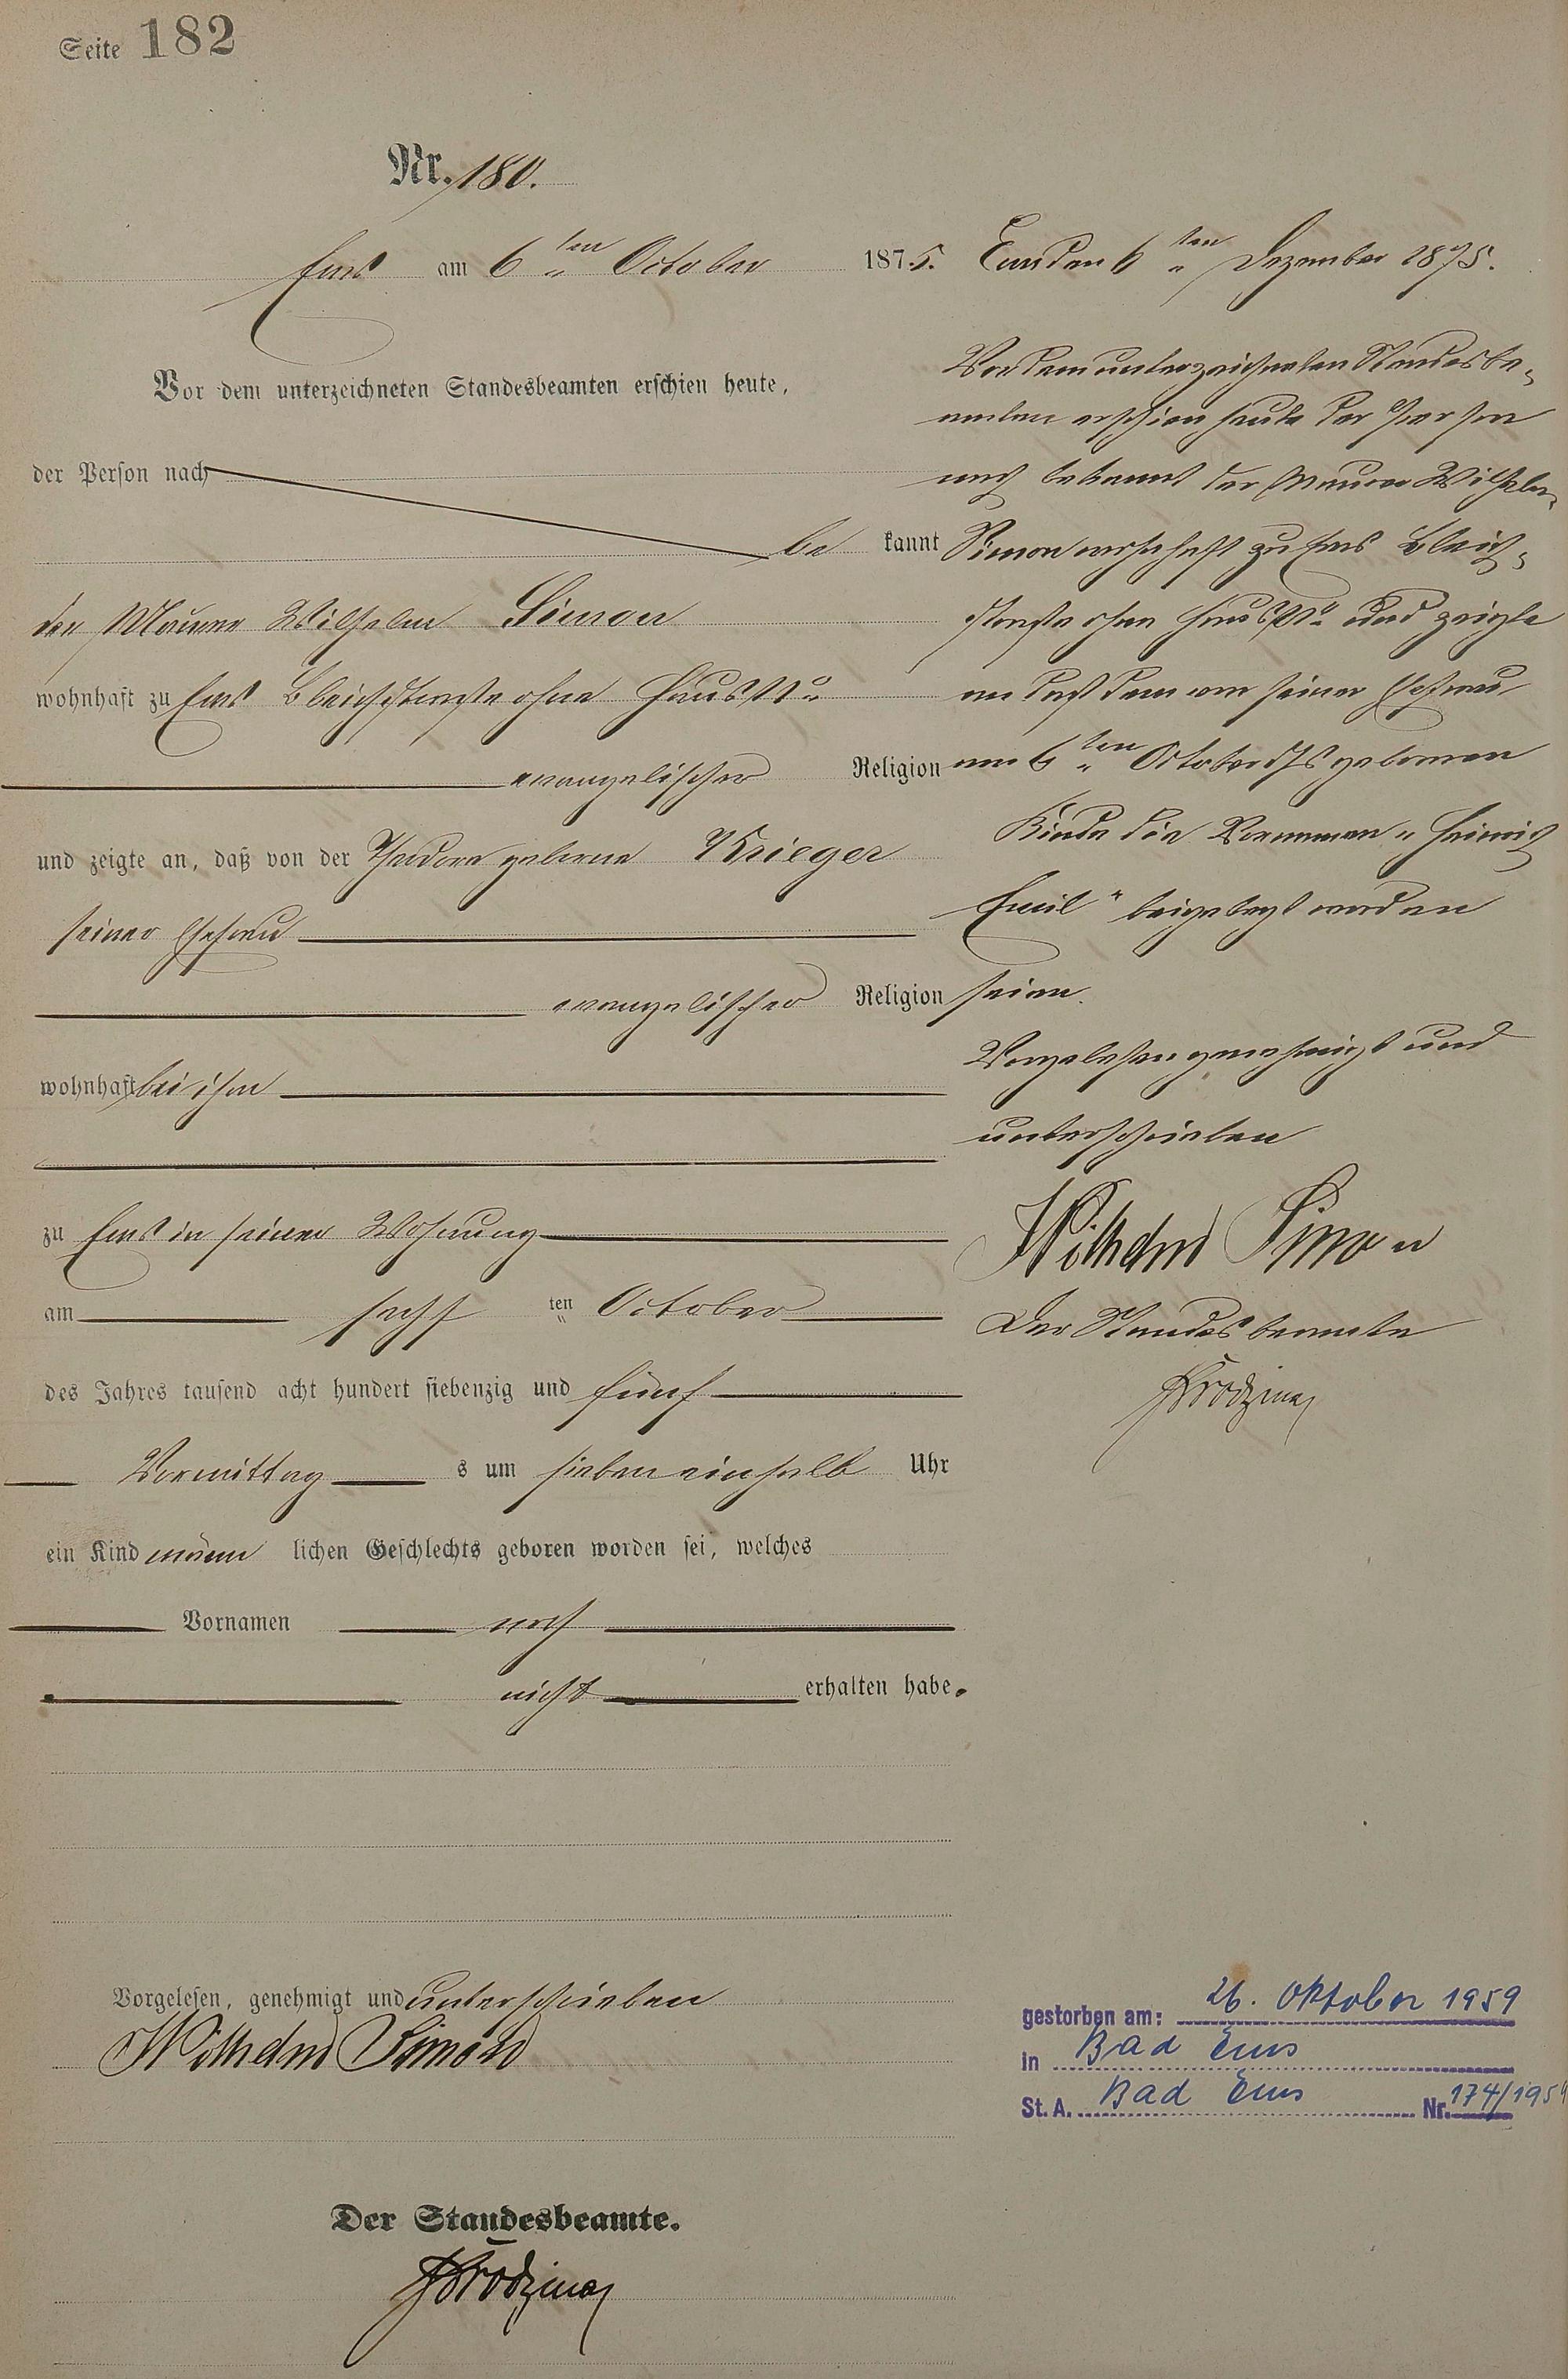 Seite 182
Nr. 180.
Ems am 6ten October 1875.
Vor dem unterzeichneten Standesbeamten erschien heute,
der Person nach
be kannt
der Maurer Wilhelm Simon
wohnhaft zu Ems Bleichstraße ohne Haus No
evangelischer Religion
und zeigte an, daß von der Theodora geborne Krieger
seiner Ehefrau
evangelischer Religion
wohnhaft bei ihm
zu Ems in seiner Wohnung
am sechs ten October
des Jahres tausend acht hundert siebenzig und fünf
Vormittag s um sieben einhalb Uhr
ein Kind männ lichen Geschlechts geboren worden sei, welches
Vornamen noch
nicht erhalten habe.
Vorgelesen, genehmigt und unterschrieben
Wilhelm Simon
Der Standesbeamte.
Ems den 6ten Dezember 1875.
Vor dem unterzeichneten Standesbe-
amten erschien heute der Person
nach bekannt der Maurer Wilhelm
Simon wohnhaft zu Ems Bleich-
straße ohne Haus No und zeigte
an daß dem von seiner Ehefrau
am 6ten October dJs geborenen
Kinde die Vornamen „Heinrich
Emil" beigelegt worden
seien.
Vorgelesen genehmigt und
unterschrieben
Wilhelm Simon
Der Standesbeamte
gestorben am: 26. Oktober 1959
in Bad Ems
St. A. Bad Ems Nr. 174/1959